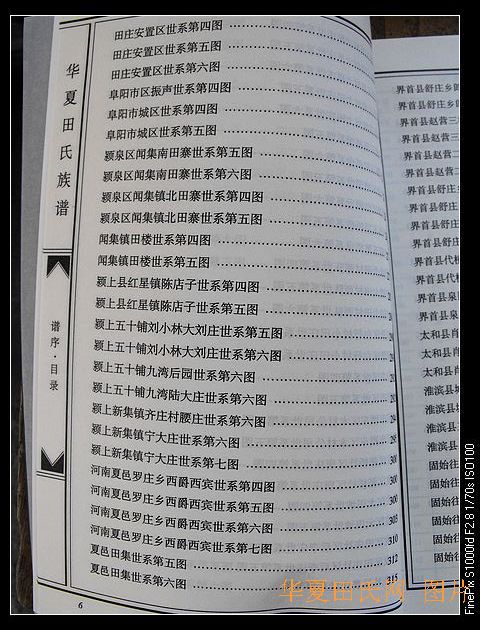 华夏田氏族谱
谱序·目录
田庄安置区世系第四图
田庄安置区世系第五图
田庄安置区世系第六图
阜阳市区振声世系第四图
阜阳市城区世系第四图
阜阳市城区世系第五图
颍泉区闻集南田寨世系第五图
颍泉区闻集南田寨世系第六图
颍泉区闻集镇北田寨世系第四图
颍泉区闻集镇北田寨世系第五图
闻集镇田楼世系第四图
闻集镇田楼世系第五图
颍上县红星镇陈店子世系第四图
颍上县红星镇陈店子世系第五图
颍上五十铺刘小林大刘庄世系第五图
颍上五十铺刘小林大刘庄世系第六图
颍上五十铺九湾后园世系第六图
颍上五十铺九湾陆大庄世系第六图
颍上新集镇齐庄村腰庄世系第六图
颍上新集镇宁大庄世系第六图
颍上新集镇宁大庄世系第七图
河南夏邑罗庄乡西爵西宾世系第四图
河南夏邑罗庄乡西爵西宾世系第五图
河南夏邑罗庄乡西爵西宾世系第六图 305
河南夏邑罗庄乡西爵西宾世系第七图 310
夏邑田集世系第五图 312
夏邑田集世系第六图 315
6
界首县舒庄乡
界首县舒庄乡
界首县赵营三
界首县赵营三
界首县赵营二
界首县赵营二
界首县舒庄
界首县舒庄
界首县代
界首县泉
界首县泉
太和县肖
太和县肖
太和县
淮滨县
淮滨县
淮滨县
固始往
固始往
固始往
固始往
固始往
华夏田氏网 图片
FinePix S1000fd F2.8 1/70s ISO100